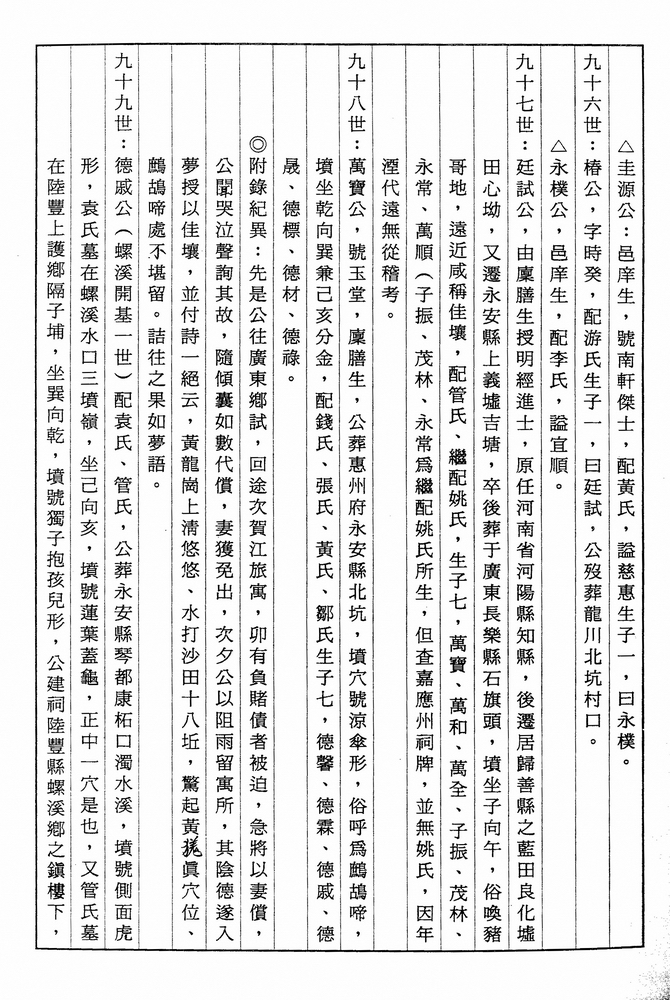 △圭源公：邑庠生，號南軒傑士，配黃氏，謚慈惠生子一，曰永樸。
九十六世：樁公，字時癸，配游氏生子一，曰廷試，公歿葬龍川北坑村口。
△永樸公，邑庠生，配李氏，謚宜順。
九十七世：廷試公，由廩膳生授明經進士，原任河南省河陽縣知縣，後遷居歸善縣之藍田良化墟
田心坳，又遷永安縣上義墟吉塘，卒後葬于廣東長樂縣石旗頭，墳坐子向午，俗喚豬
哥地，遠近咸稱佳壤，配管氏、繼配姚氏，生子七，萬寶、萬和、萬全、子振、茂林、
永常、萬順（子振、茂林、永常爲繼配姚氏所生，但查嘉應州祠牌，並無姚氏，因年
湮代遠無從稽考。
九十八世：萬寶公，號玉堂，廩膳生，公葬惠州府永安縣北坑，墳穴號涼傘形，俗呼爲鷓鴣啼，
墳坐乾向巽兼己亥分金，配錢氏、張氏、黃氏、鄒氏生子七，德馨、德霖、德戚、德
晟、德標、德材、德祿。
◎附錄紀異：先是公往廣東鄉試，回途次賀江旅寓，卯有負賭債者被迫，急將以妻償，
公聞哭泣聲詢其故，隨傾囊如數代償，妻獲免出，次夕公以阻雨留寓所，其陰德遂入
夢授以佳壤，並付詩一絕云，黃龍崗上淸悠悠、水打沙田十八坵，驚起黃㹳眞穴位、
鷓鴣啼處不堪留。詰往之果如夢語。
九十九世：德戚公（螺溪開基一世）配袁氏、管氏，公葬永安縣琴都康柘口濁水溪，墳號側面虎
形，袁氏墓在螺溪水口三墳嶺，坐己向亥，墳號蓮葉蓋龜，正中一穴是也，又管氏墓
在陸豐上護鄉隔子埔，坐巽向乾，墳號獨子抱孩兒形，公建祠陸豐縣螺溪鄉之鎭樓下，